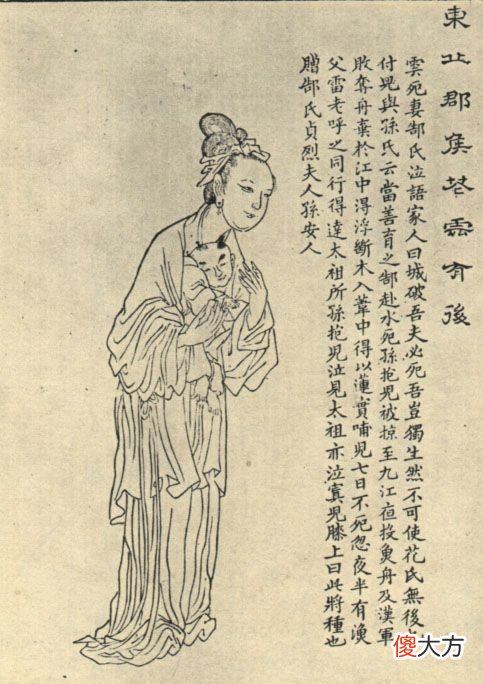 東丘郡侯花雲有後
雲死妻郜氏泣語家人曰城破吾夫必死吾豈獨生然不可使花氏無後
付兒與孫氏云當善育之郜赴水死孫抱兒被掠至九江夜投魚舟及漢軍
敗奪舟棄於江中得浮斷木入葦中得以蓮實哺兒七日不死忽夜半有漁
父雷老呼之同行得達太祖所孫抱兒泣見太祖亦泣寘兒膝上曰此將種也
贈郜氏貞烈夫人孫安人
傻大方